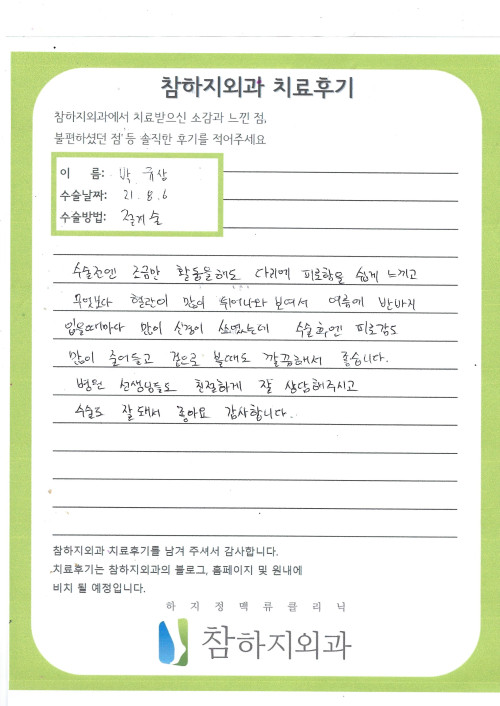 참하지외과 치료후기
참하지외과에서 치료받으신 소감과 느낀 점,
불편하셨던 점 등 솔직한 후기를 적어주세요
이 름: 박
수술날짜: 21. 8. 6
수술방법: 술
수술전엔 조금만 활동을해도 다리에 피로함을 쉽게 느끼고
무엇보다 혈관이 많이 튀어나와 보여서 여름에 반바지
입을때마다 많이 신경이 쓰였는데 수술후엔 피로감도
많이 줄어들고 겉으로 볼때도 깔끔해서 좋습니다.
병원 선생님들도 친절하게 잘 상담해주시고
수술도 잘돼서 좋아요 감사합니다.
참하지외과 치료후기를 남겨 주셔서 감사합니다.
치료후기는 참하지외과의 블로그, 홈페이지 및 원내에
비치 될 예정입니다.
하지정맥류클리닉
참하지외과